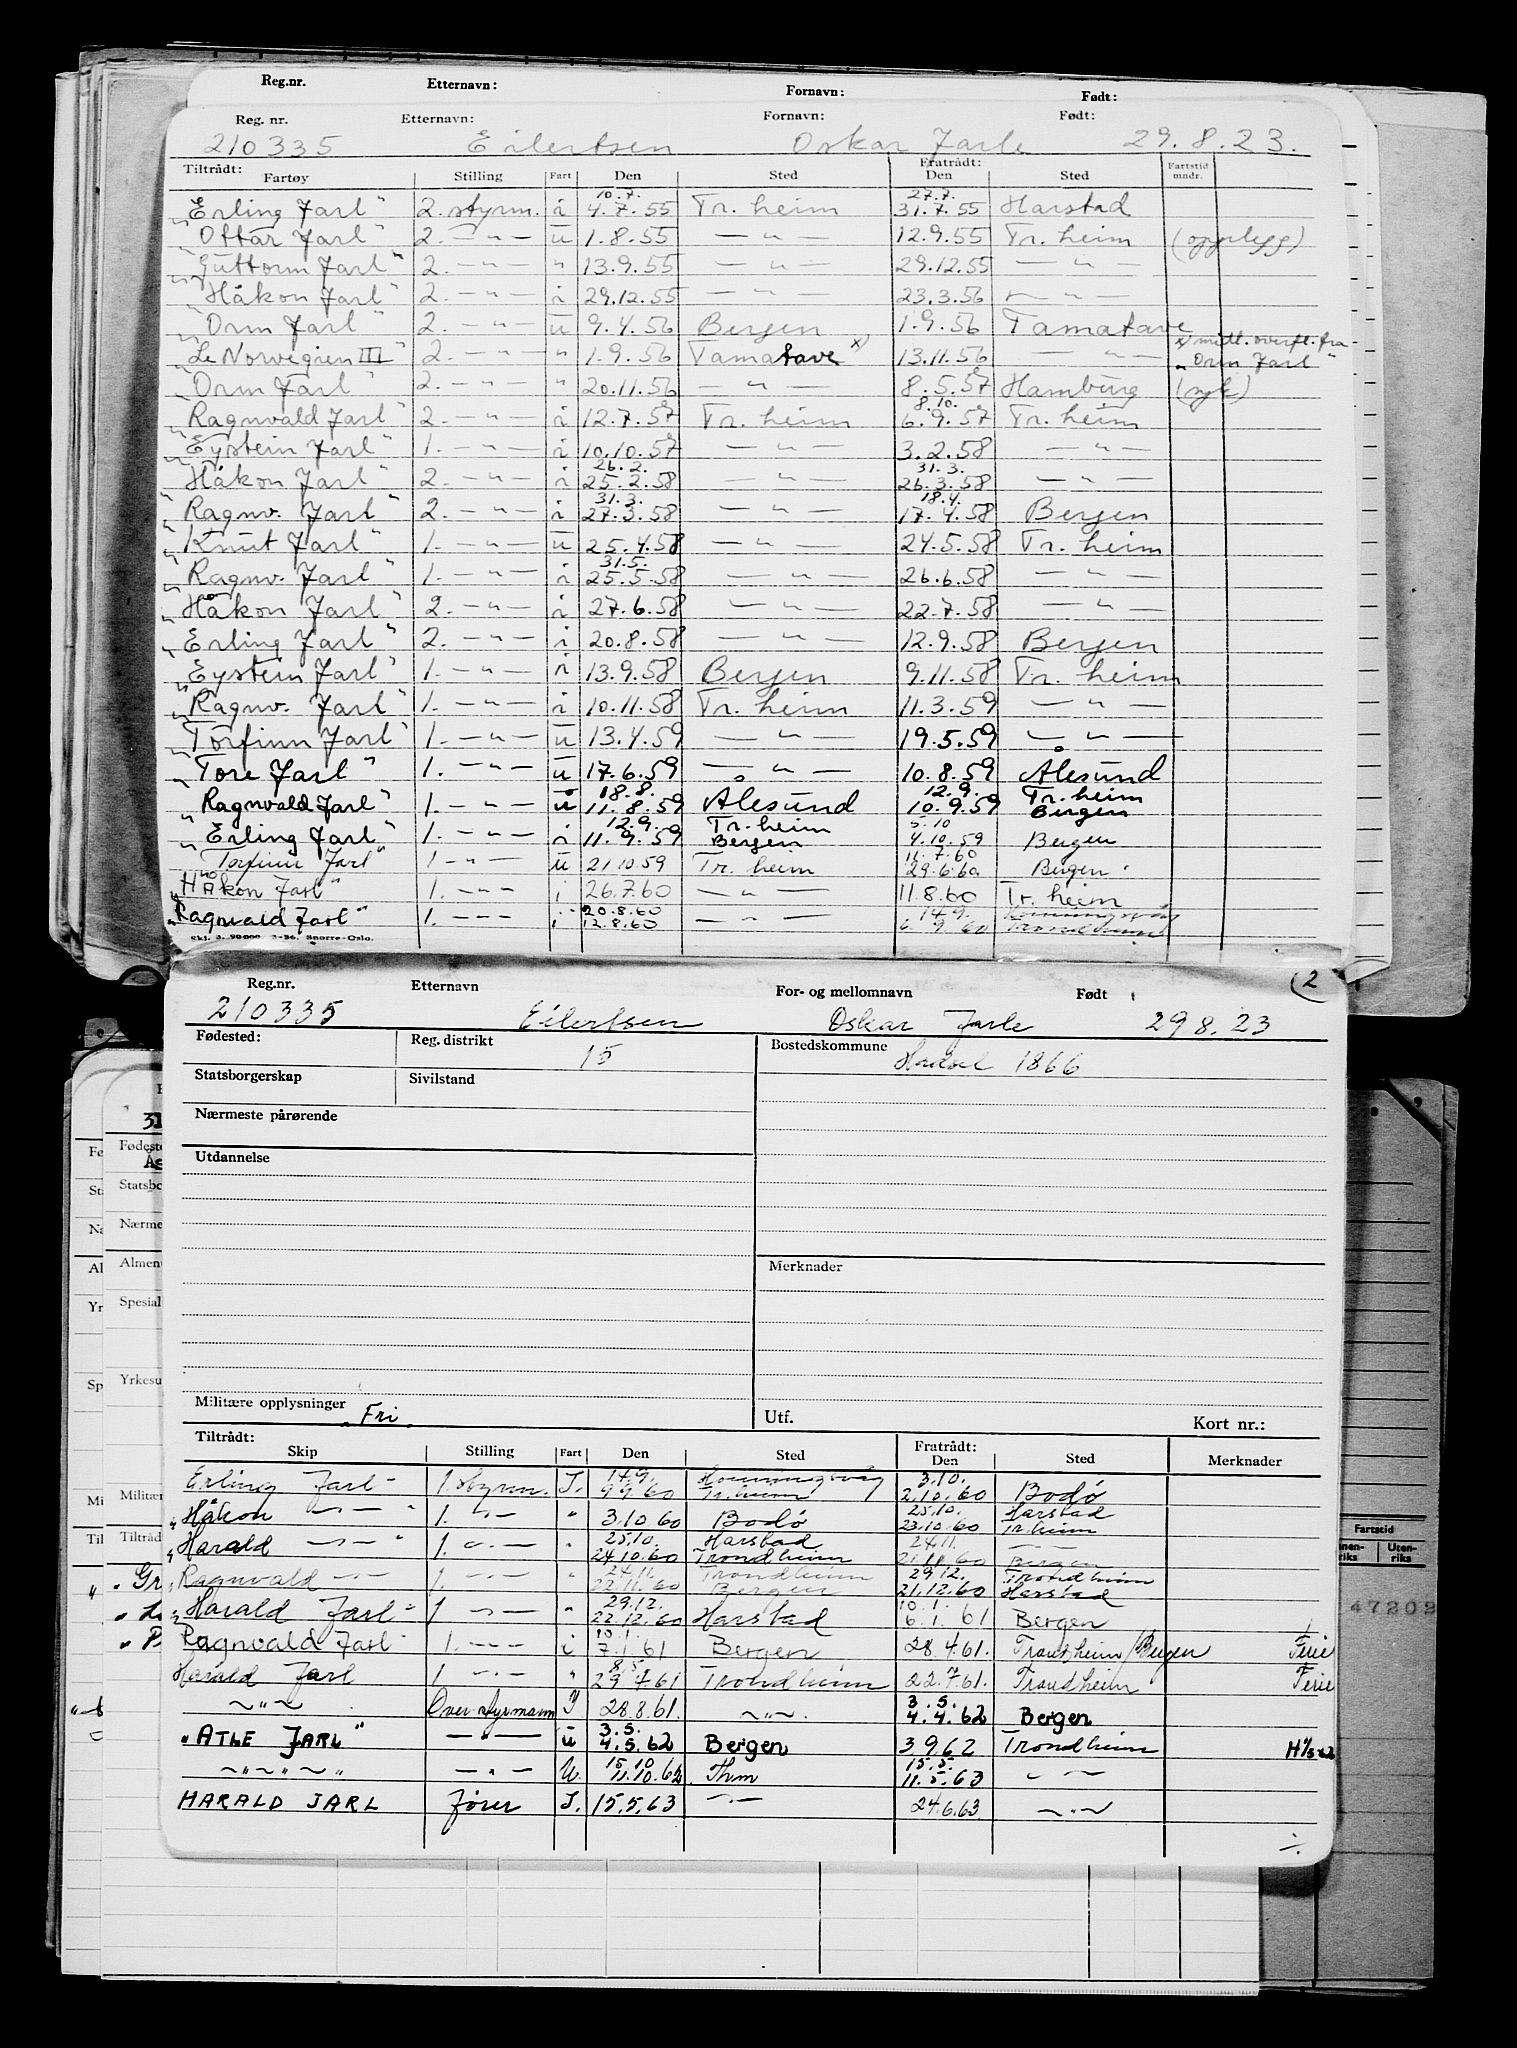 Reg.nr. Etternavn: Fornavn: Født:
Reg. nr. Etternavn: Fornavn: Født:
210335 Eilertsen Oskar Jarle 29.8.23.
Tiltrådt: Fratrådt:
Fartøy Stilling Fart Den Sted Den Sted Fartstid mndr.
10.7. 27.7.
"Erling Jarl" 2. styrm. i 4.7.55 Tr.heim 31.7.55 Harstad
"Ottar Jarl" 2. — " — u 1.8.55 — " — 12.9.55 Tr.heim (opplegg)
"Guttorm Jarl" 2. — " — " 13.9.55 — " — 29.12.55 — " —
"Håkon Jarl" 2. — " — i 29.12.55 — " — 23.3.56 — " —
"Orm Jarl" 2. — " — u 9.4.56 Bergen 1.9.56 Tamatave
"Le Norvegien III" 2. — " — " 1.9.56 Tamatave x) 13.11.56 — " — x) midl. overfl. fra "Orm Jarl"
"Orm Jarl" 2. — " — " 20.11.56 — " — 8.5.57 Hamburg (syk)
8.10.
"Ragnvald Jarl" 2. — " — i 12.7.57 Tr.heim 6.9.57 Tr.heim
"Eystein Jarl" 1. — " — i 10.10.57 — " — 3.2.58 — " —
26.2. 31.3.
"Håkon Jarl" 2. — " — i 25.2.58 — " — 26.3.58 — " —
31.3. 18.4.
"Ragnv. Jarl" 2. — " — i 27.3.58 — " — 17.4.58 Bergen
"Knut Jarl" 1. — " — u 25.4.58 — " — 24.5.58 Tr.heim
31.5.
"Ragnv. Jarl" 1. — " — i 25.5.58 — " — 26.6.58 — " —
"Håkon Jarl" 2. — " — i 27.6.58 — " — 22.7.58 — " —
"Erling Jarl" 2. — " — i 20.8.58 — " — 12.9.58 Bergen
"Eystein Jarl" 1. — " — i 13.9.58 Bergen 9.11.58 Tr.heim
"Ragnv. Jarl" 1. — " — i 10.11.58 Tr.heim 11.3.59 — " —
"Torfinn Jarl" 1. — " — u 13.4.59 — " — 19.5.59 — " —
"Tore Jarl" 1. — " — u 17.6.59 — " — 10.8.59 Ålesund
18.8. 12.9. Tr.heim
"Ragnvald Jarl" 1. — " — u 11.8.59 Ålesund 10.9.59 Bergen
12.9. Tr.heim 5.10
"Erling Jarl" 1. — " — i 11.9.59 Bergen 4.10.59 Bergen
11.7.60
"Torfinn Jarl" 1 — " — u 21.10.59 Tr.heim 29.6.60 Bergen
"Håkon Jarl" 1. — " — i 26.7.60 — " — 11.8.60 Tr.heim
20.8.60 14.9. Honningsvåg
"Ragnvald Jarl" 1. — i 12.8.60 — " — 6.9.60 Trondheim
Snorre-Oslo.
2
Reg.nr. Etternavn For- og mellomnavn Født
210335 Eilertsen Oskar Jarle 29 8.23
Fødested: Reg. distrikt 15 Bostedskommune Hadsel 1866
Statsborgerskap Sivilstand
Nærmeste pårørende
Utdannelse
Merknader
Militære opplysninger Fri. Utf. Kort nr.:
Tiltrådt: Fratrådt:
Skip Stilling Fart Den Sted Den Sted Merknader
14.9. Honningsvåg 3.10.
Erling Jarl 1. styrm. I. 9.9.60 Tr.heim 2.10.60 Bodø
25.10. Harstad
"Håkon — " — 1. — " — " 3.10 60 Bodø 23.10.60 Tr.heim
25.10. Harstad 24.11.
"Harald — " — 1. — " — " 24.10.60 Trondheim 21.11.60 Bergen
24.11. Trondheim 29.12. Trondheim
Ragnvald — " — 1. — " — " 22.11.60 Bergen 21.12.60 Harstad
29.12. 10.1.
"Harald Jarl" 1 — " — " 22.12.60 Harstad 6.1.61 Bergen
10.1.
Ragnvald Jarl 1. — " — i 7.1.61 Bergen 28.4.61. Trondheim/Bergen Ferie
Harald Jarl 1 — " — " 61 Trondheim 22.7.61. Trondheim Ferie
3.5.
— " — Overstyrmann I 28.8.61. — " — 4.4.62 Bergen
3.5.
"ATLE JARL" — " — u 4.5.62 Bergen 3 9 62 Trondheim
15.10 15.5.
— " — " — " — " — U. 11.10.62 Thm 11.5.63 — " —
HARALD JARL Fører I. 15.5.63 — " — 24.6.63. — " —
Fødeste
Statsbo
Nærme
Almen
Spesial
Yrkesu
Militær
Tiltrådt
Fartstid
Uten-riks
47202